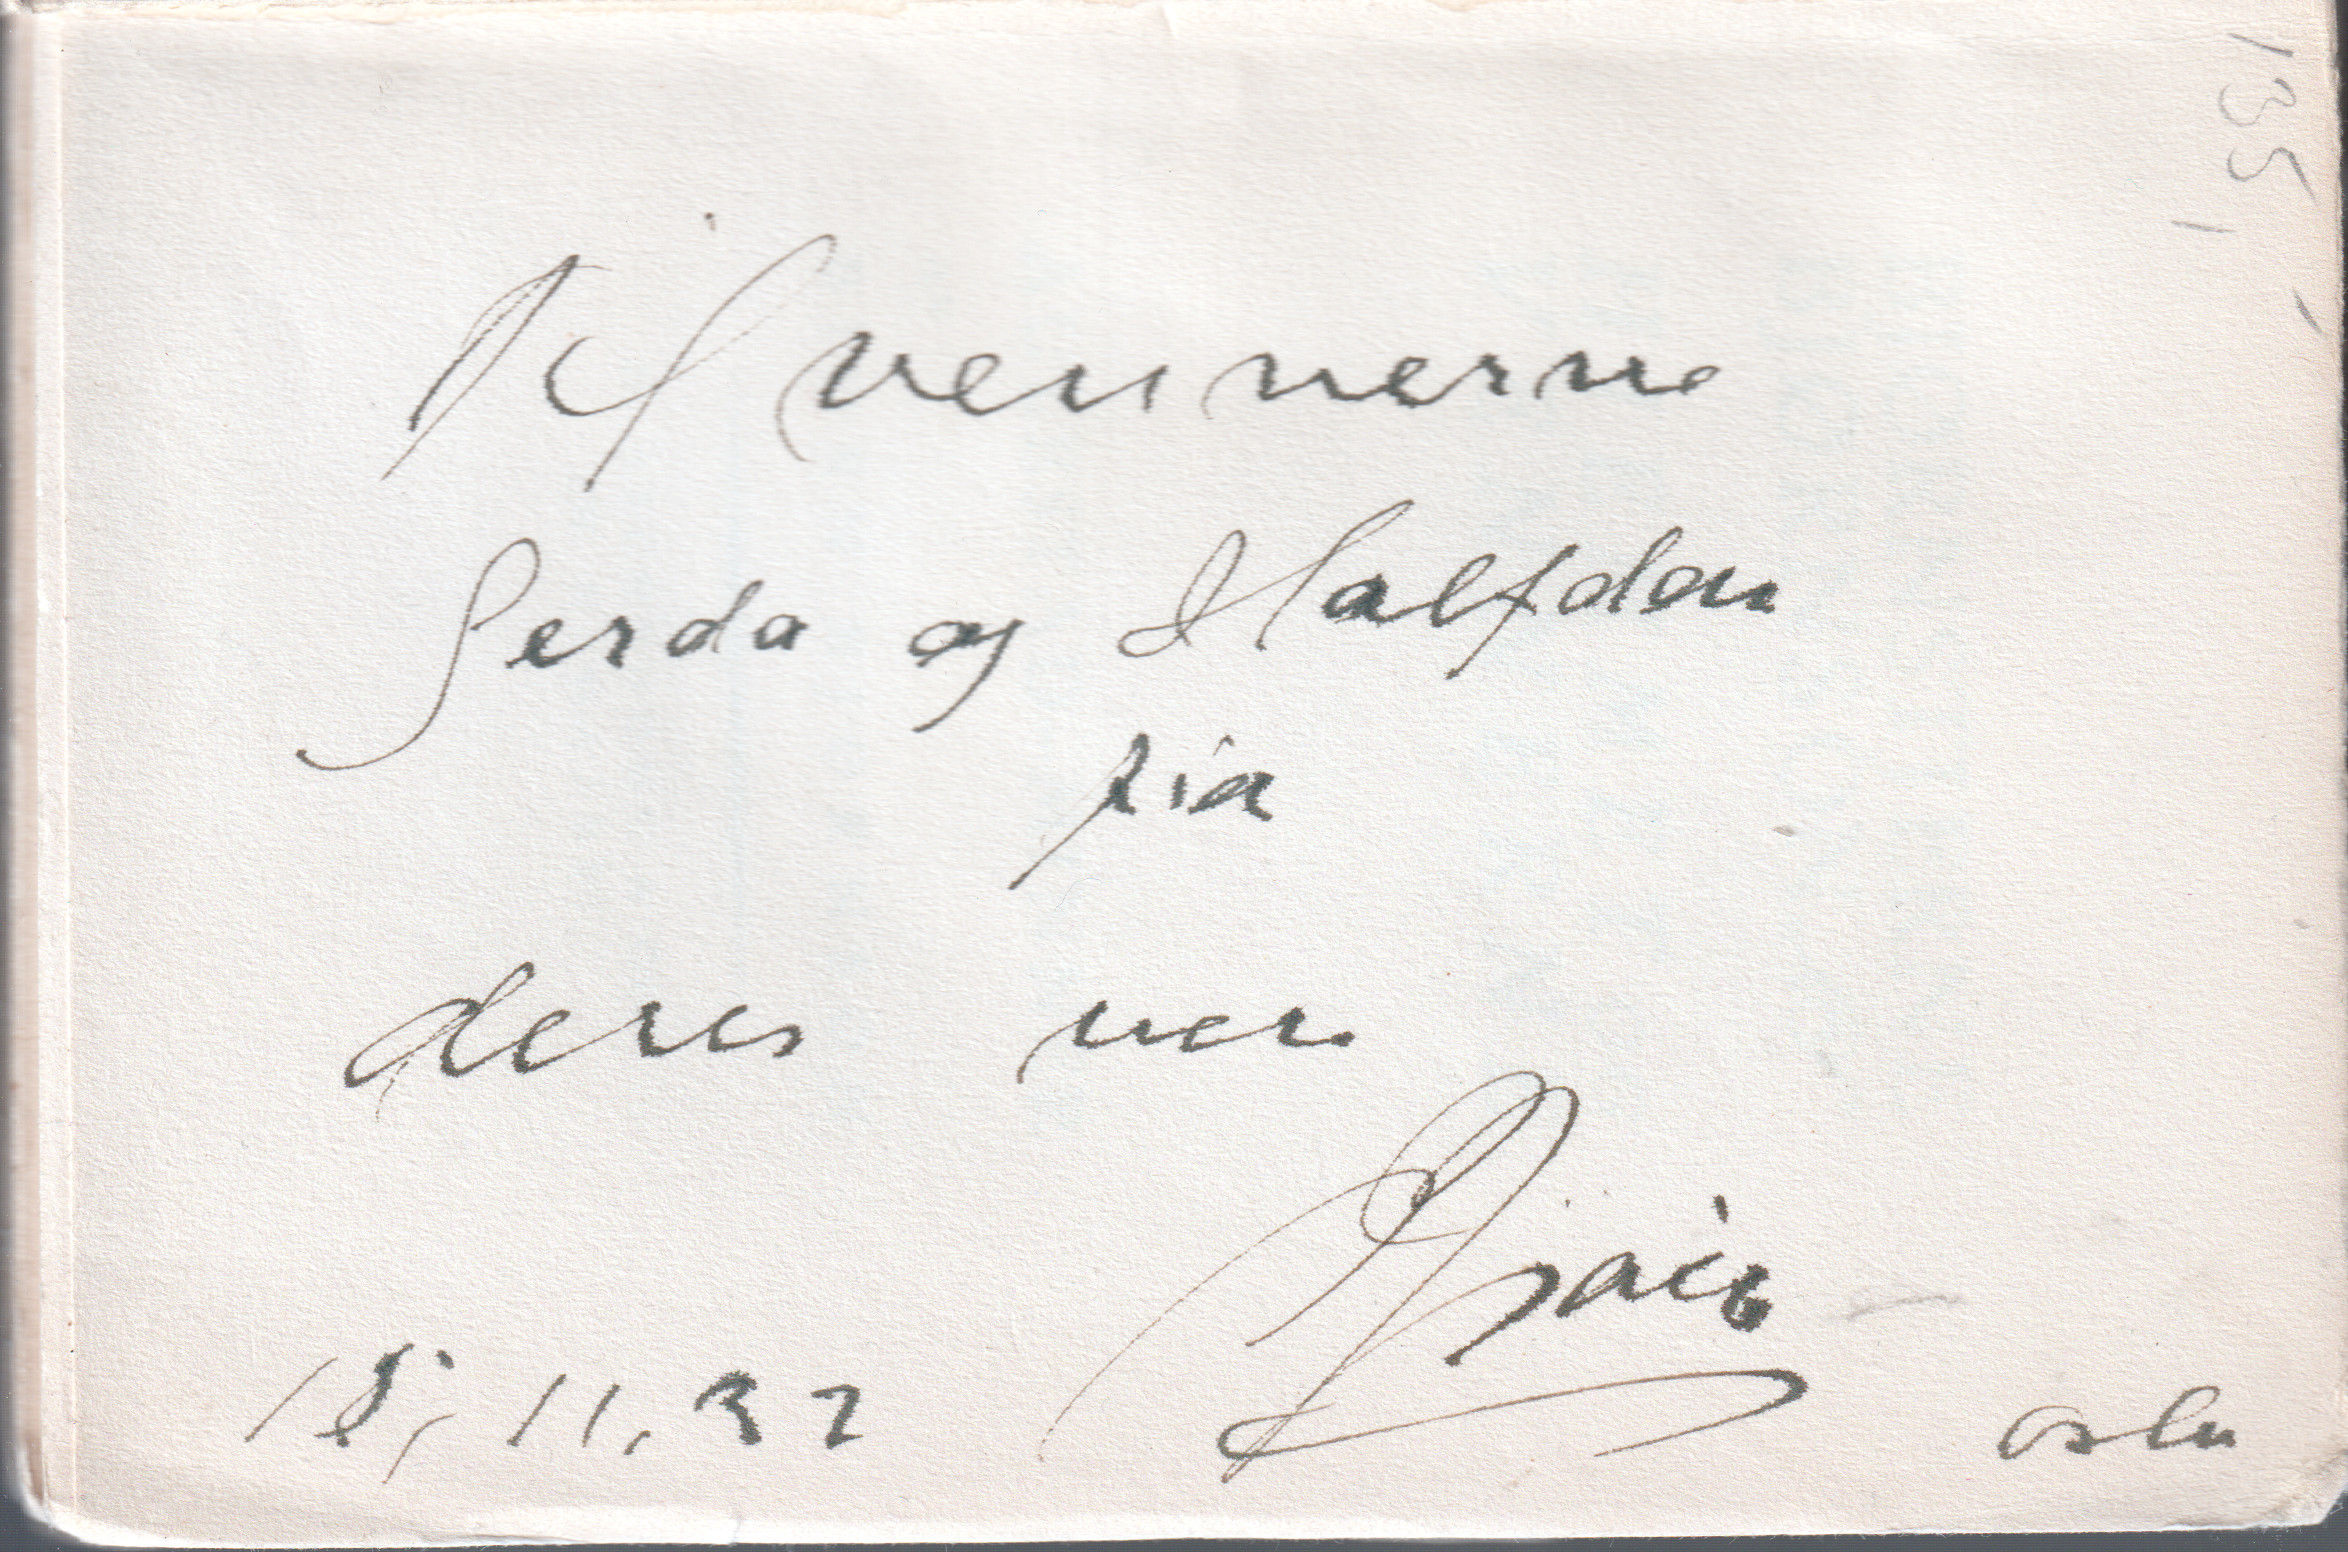 Til vennerne
Gerda og Halfdan
fra
deres ven
18, 11, 32
Oslo
135,